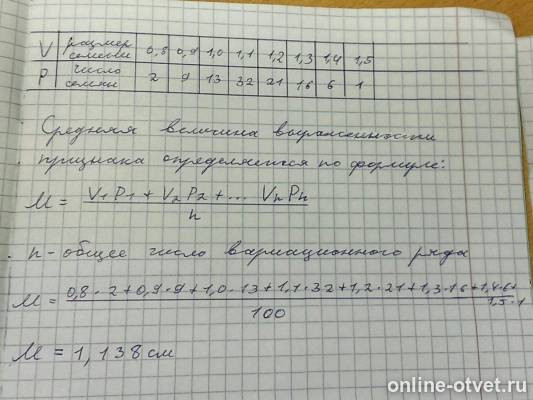 V размер семени 0,8 0,9 1,0 1,1 1,2 1,3 1,4 1,5
P число семян 2 9 13 32 21 16 6 1
Средняя величина выраженности
признака определяется по формуле:
M = (V₁P₁ + V₂P₂ + ... VₙPₙ) / n
n - общее число вариационного ряда
M = (0,8·2+0,9·9+1,0·13+1,1·32+1,2·21+1,3·16+1,4·6+1,5·1) / 100
M = 1,138 см
online-otvet.ru